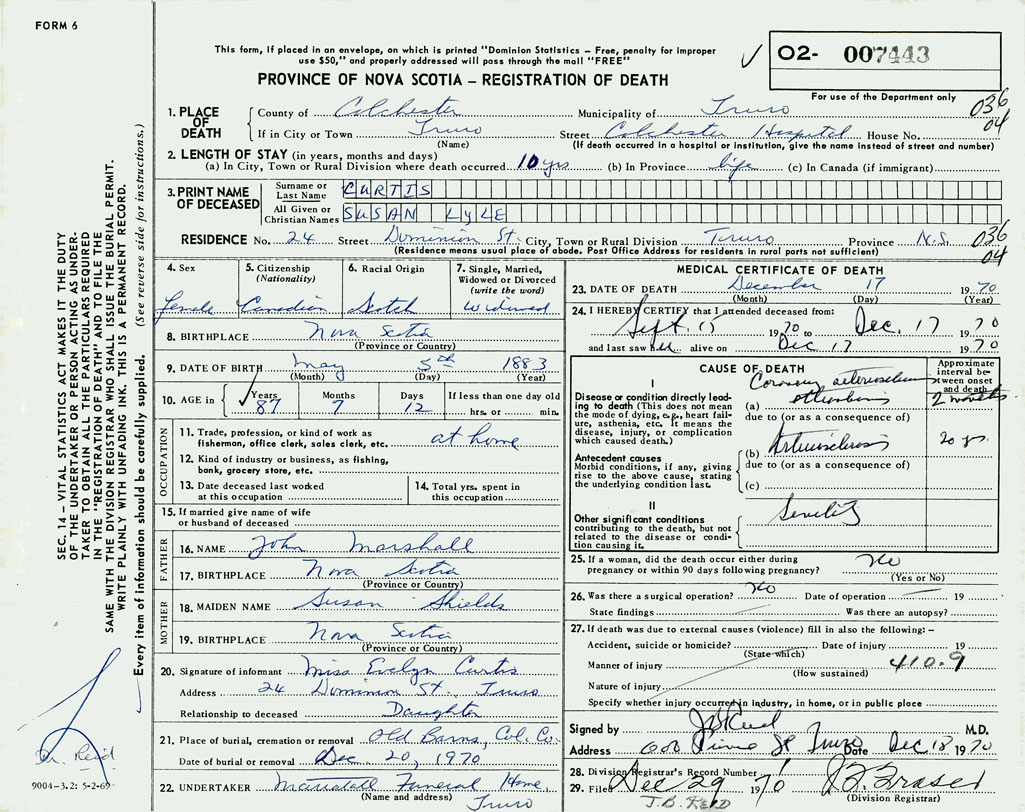 FORM 6
This form, if placed in an envelope, on which is printed "Dominion Statistics – Free, penalty for improper
use $50," and properly addressed will pass through the mail "FREE"
02- 007443
PROVINCE OF NOVA SCOTIA – REGISTRATION OF DEATH
For use of the Department only
036
04
1. PLACE OF DEATH
County of Colchester Municipality of Truro
If in City or Town Truro Street Colchester Hospital House No.
(Name) (If death occurred in a hospital or institution, give the name instead of street and number)
2. LENGTH OF STAY (in years, months and days)
(a) In City, Town or Rural Division where death occurred 10 yrs (b) In Province life (c) In Canada (if immigrant)
3. PRINT NAME OF DECEASED
Surname or Last Name CURTIS
All Given or Christian Names SUSAN LYLE
RESIDENCE No. 24 Street Dominion St. City, Town or Rural Division Truro Province N.S.
(Residence means usual place of abode. Post Office Address for residents in rural parts not sufficient)
036
04
4. Sex
female
5. Citizenship
(Nationality)
Canadian
6. Racial Origin
Scotch
7. Single, Married,
Widowed or Divorced
(write the word)
Widowed
8. BIRTHPLACE Nova Scotia
(Province or Country)
9. DATE OF BIRTH May 5th 1883
(Month) (Day) (Year)
10. AGE in Years Months Days If less than one day old
87 7 12 hrs. or min.
OCCUPATION
11. Trade, profession, or kind of work as
fisherman, office clerk, sales clerk, etc. at home
12. Kind of industry or business, as fishing,
bank, grocery store, etc.
13. Date deceased last worked
at this occupation
14. Total yrs. spent in
this occupation
15. If married give name of wife
or husband of deceased
FATHER
16. NAME John Marshall
17. BIRTHPLACE Nova Scotia
(Province or Country)
MOTHER
18. MAIDEN NAME Susan Shields
19. BIRTHPLACE Nova Scotia
(Province or Country)
20. Signature of informant Miss Evelyn Curtis
Address 24 Dominion St. Truro
Relationship to deceased Daughter
21. Place of burial, cremation or removal Old Barns, Col. Co.
Date of burial or removal Dec. 20, 1970
22. UNDERTAKER Mattatall Funeral Home
(Name and address) Truro
MEDICAL CERTIFICATE OF DEATH
23. DATE OF DEATH December 17 1970
(Month) (Day) (Year)
24. I HEREBY CERTIFY that I attended deceased from:
Sept. 15 1970 to Dec. 17 1970
and last saw her alive on Dec 17 1970
CAUSE OF DEATH
Approximate
interval between onset
and death
I
Disease or condition directly leading
to death (This does not mean
the mode of dying, e.g., heart failure,
asthenia, etc. It means the
disease, injury, or complication
which caused death.)
Coronary
(a) 2 months
due to (or as a consequence of)
Antecedent causes
Morbid conditions, if any, giving
rise to the above cause, stating
the underlying condition last.
(b) Arteriosclerosis 20 yrs.
due to (or as a consequence of)
(c)
II
Other significant conditions
contributing to the death, but not
related to the disease or condition
causing it.
Senility
25. If a woman, did the death occur either during
pregnancy or within 90 days following pregnancy? No
(Yes or No)
26. Was there a surgical operation? No Date of operation 19
State findings Was there an autopsy?
27. If death was due to external causes (violence) fill in also the following: –
Accident, suicide or homicide? Date of injury 19
(State which)
Manner of injury 410.9
(How sustained)
Nature of injury
Specify whether injury occurred in industry, in home, or in public place
Signed by J B Reid M.D.
Address Prince St Truro Date Dec 18 1970
28. Division Registrar's Record Number
29. Filed Dec 29 1970
J.B. REID
Fraser
(Division Registrar)
SEC. 14 – VITAL STATISTICS ACT MAKES IT THE DUTY
OF THE UNDERTAKER OR PERSON ACTING AS UNDERTAKER
TO OBTAIN ALL THE PARTICULARS REQUIRED
IN THE "REGISTRATION OF DEATH" AND TO FILE THE
SAME WITH THE DIVISION REGISTRAR WHO SHALL ISSUE THE BURIAL PERMIT.
WRITE PLAINLY WITH UNFADING INK. THIS IS A PERMANENT RECORD.
Every item of information should be carefully supplied. (See reverse side for instructions.)
Dr. Reid
9004-3.2: 5-2-69